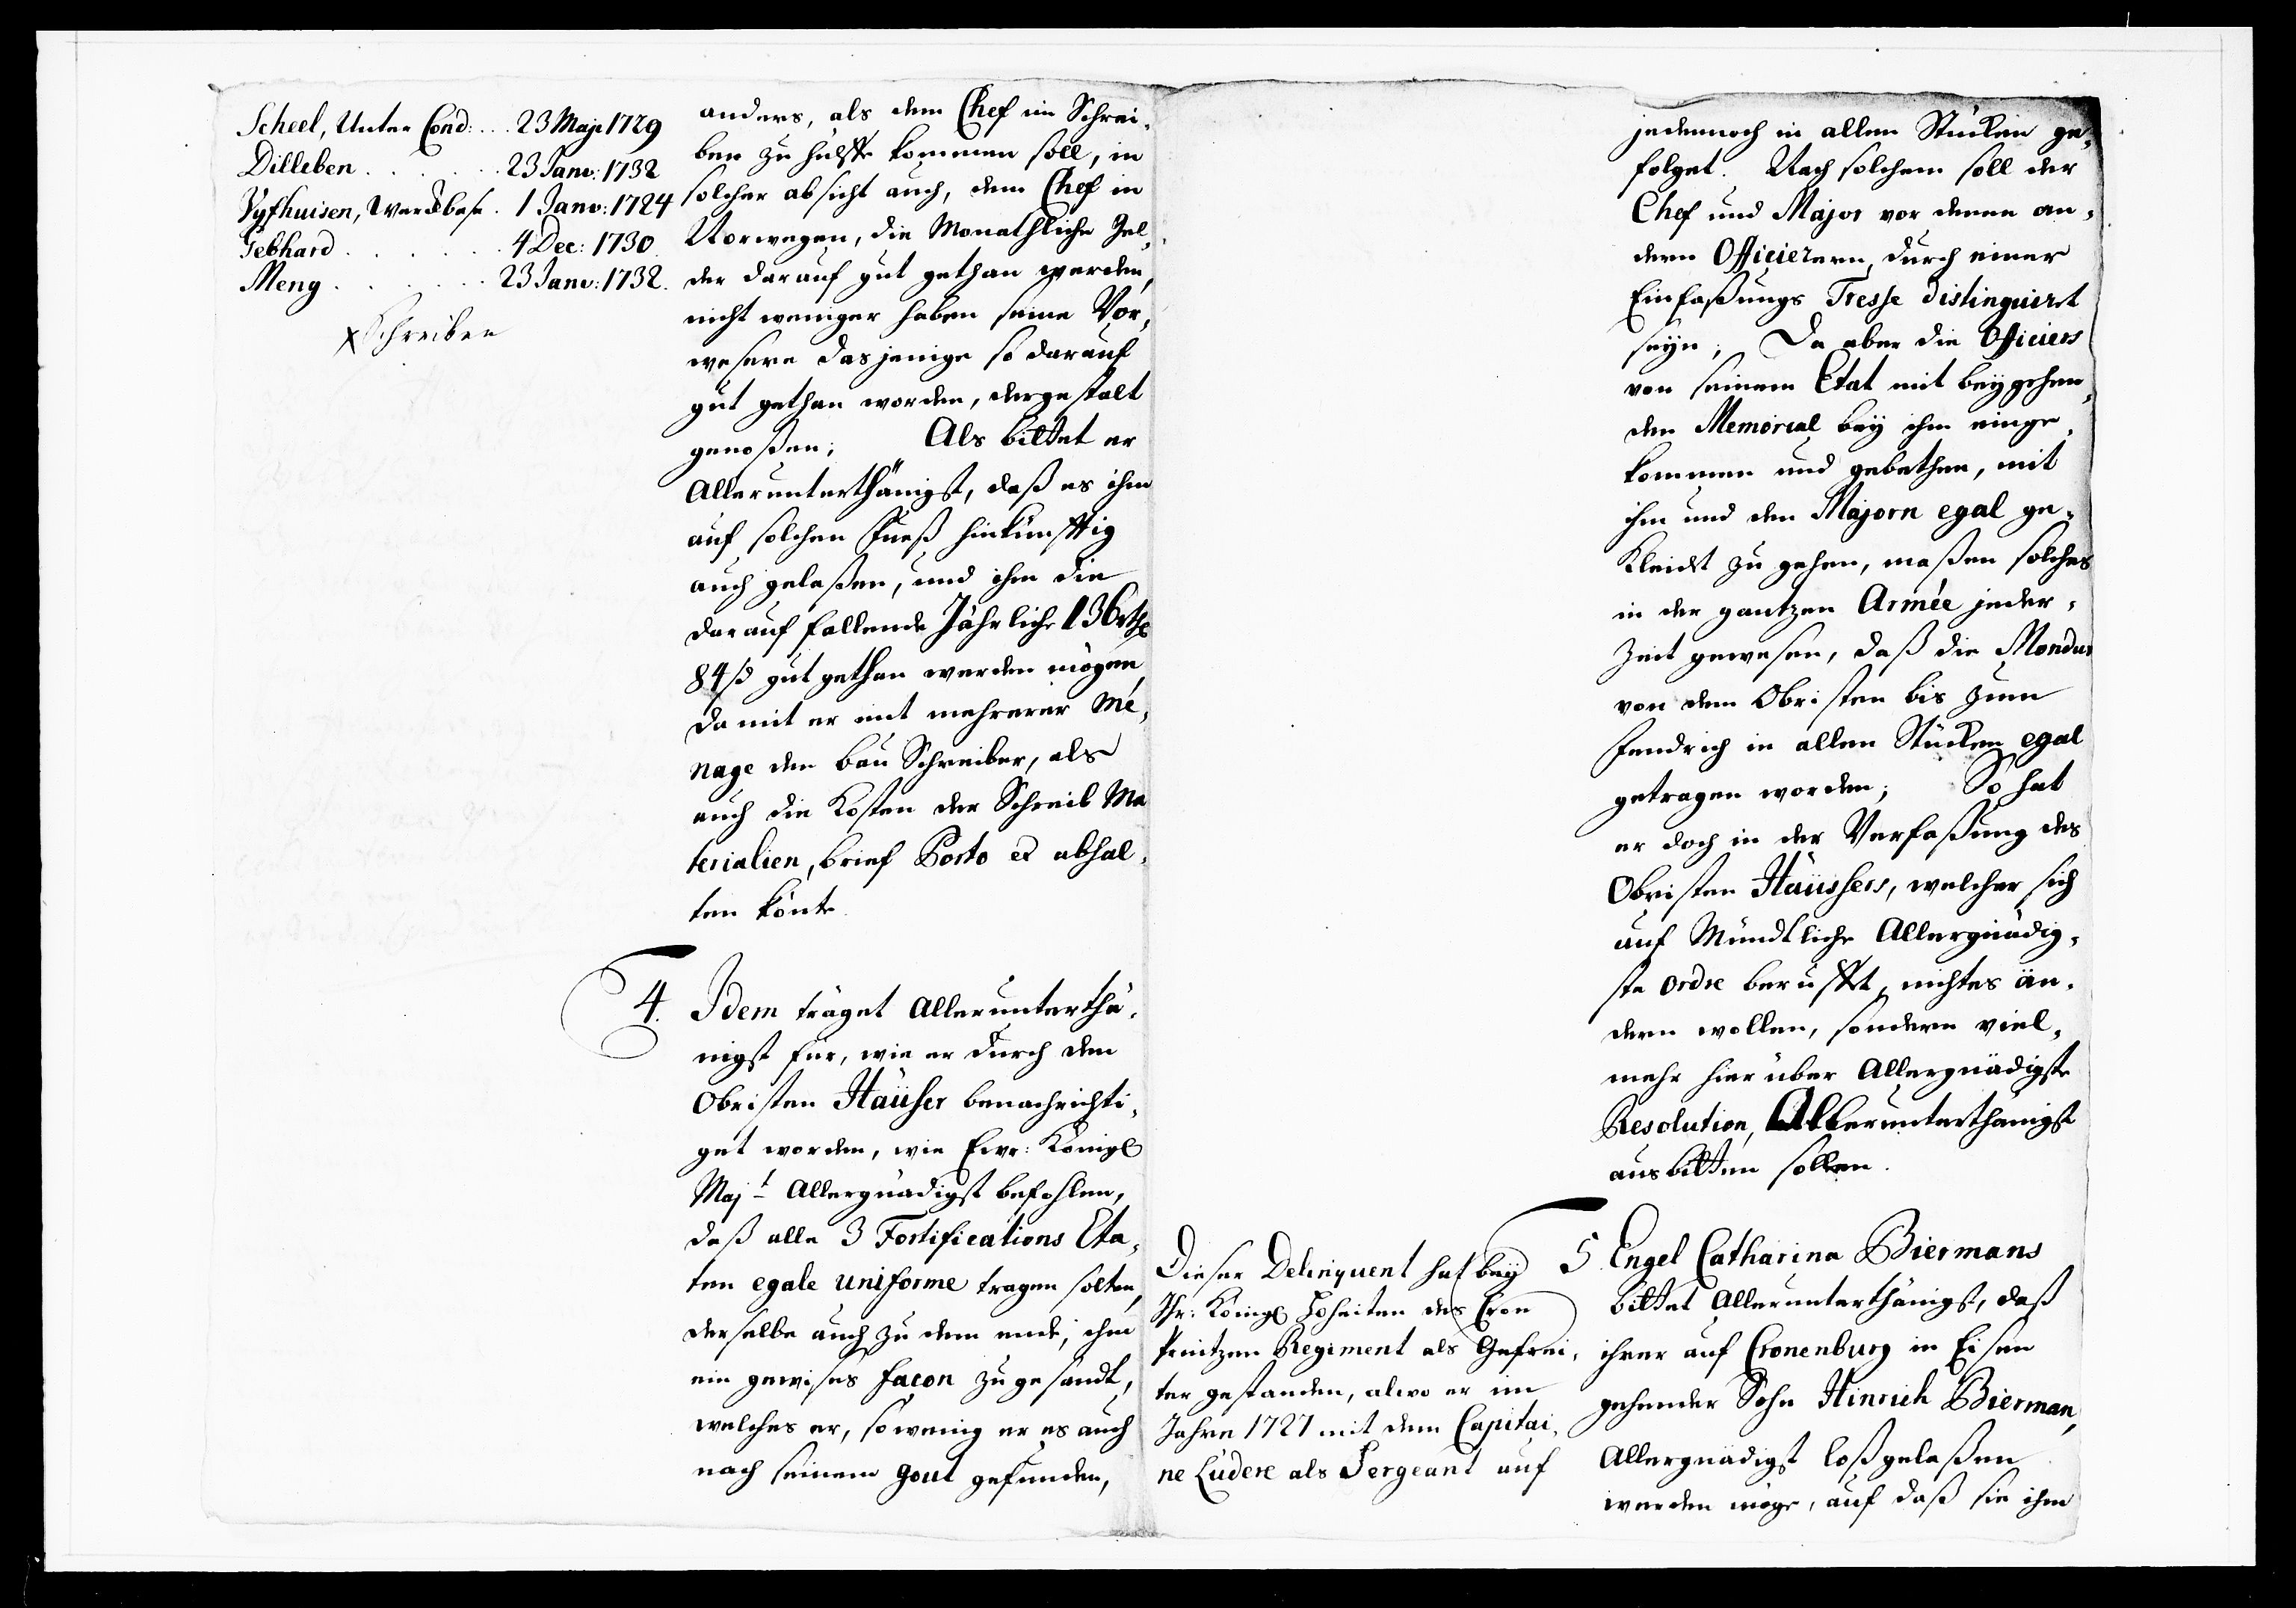 Scheel, Unter Cond: . . . 23 Maji 1729
Dilleben . . . . . . 23 Janv: 1732
Vyfhuisen, Werckbase . 1 Janv: 1724
Gebhard . . . . . . 4 Dec: 1730
Meng . . . . . . 23 Janv: 1732.
x Schreiben
anders, als dem Chef im Schrei-
ben zu hülffe kommen soll, in
solcher absicht auch, dem Chef in
Norwegen, die Monathliche Gel-
der darauf gut gethan werden,
nicht weniger haben seine Vor-
wesere dasjenige so darauf
gut gethan worden, dergestalt
genoßen; Als bittet er
Allerunterthänigst, daß es ihm
auf solchen Fueß hinkünfftig
auch gelaßen, und ihm die
darauf fallende Jährliche 136 rthl
84 ß gut gethan werden mögen,
damit er mit mehrerer Mé-
nage den bau Schreiber, als
auch die Kosten der Schreib Ma
terialien, brief Porto et abhal-
ten könte.
4. Idem träget Allerunterthä-
nigst für, wie er durch den
Obristen Häüser benachrichti-
get worden, wie Ewr: Königl
Majt Allergnädigst befohlen,
daß alle 3 Fortifications Eta-
ten egale uniforme tragen solten,
derselbe auch zu dem ende, ihm
ein gewißes façon zugesandt,
welches er, so wenig er es auch
nach seinem gout gefunden,
jedennoch in allen Stücken ge-
folget. Nach solchem soll der
Chef und Major vor denen an-
dern Officierern, durch einer
Einfaßungs Tresse distinguirt
seyn; Da aber die Officiers
von seinem Etat mit beygehen-
den Memorial bey ihm einge-
kommen und gebethen, mit
ihm und den Majorn egal ge-
kleidt zu gehen, maßen solches
in der gantzen Armée jeder-
Zeit gewesen, daß die Mondur
von dem Obristen bis zum
Fendrich in allen Stücken egal
getragen worden; So hat
er doch in der Verfaßung des
Obristen Häüssers, welcher sich
auf Mündtliche Allergnädig-
ste ordre berufft, nichtes än-
dern wollen, sondern viel-
mehr hierüber Allergnädigste
Resolution, Allerunterthänigst
ausbitten sollen.
Dieser Delinquent hat bey
Ihr: Königl Hoheiten des Cron
Printzen Regiment als Gefrei-
ter gestanden, alwo er im
Jahre 1727 mit dem Capitai-
ne Lüdere als Sergeant auf
5. Engel Catharina Biermans
bittet Allerunterthänigst, daß
ihrer auf Cronenburg in Eisen
gehender Sohn Hinrich Bierman,
Allergnädigst loßgelaßen
werden möge, auf daß sie ihm